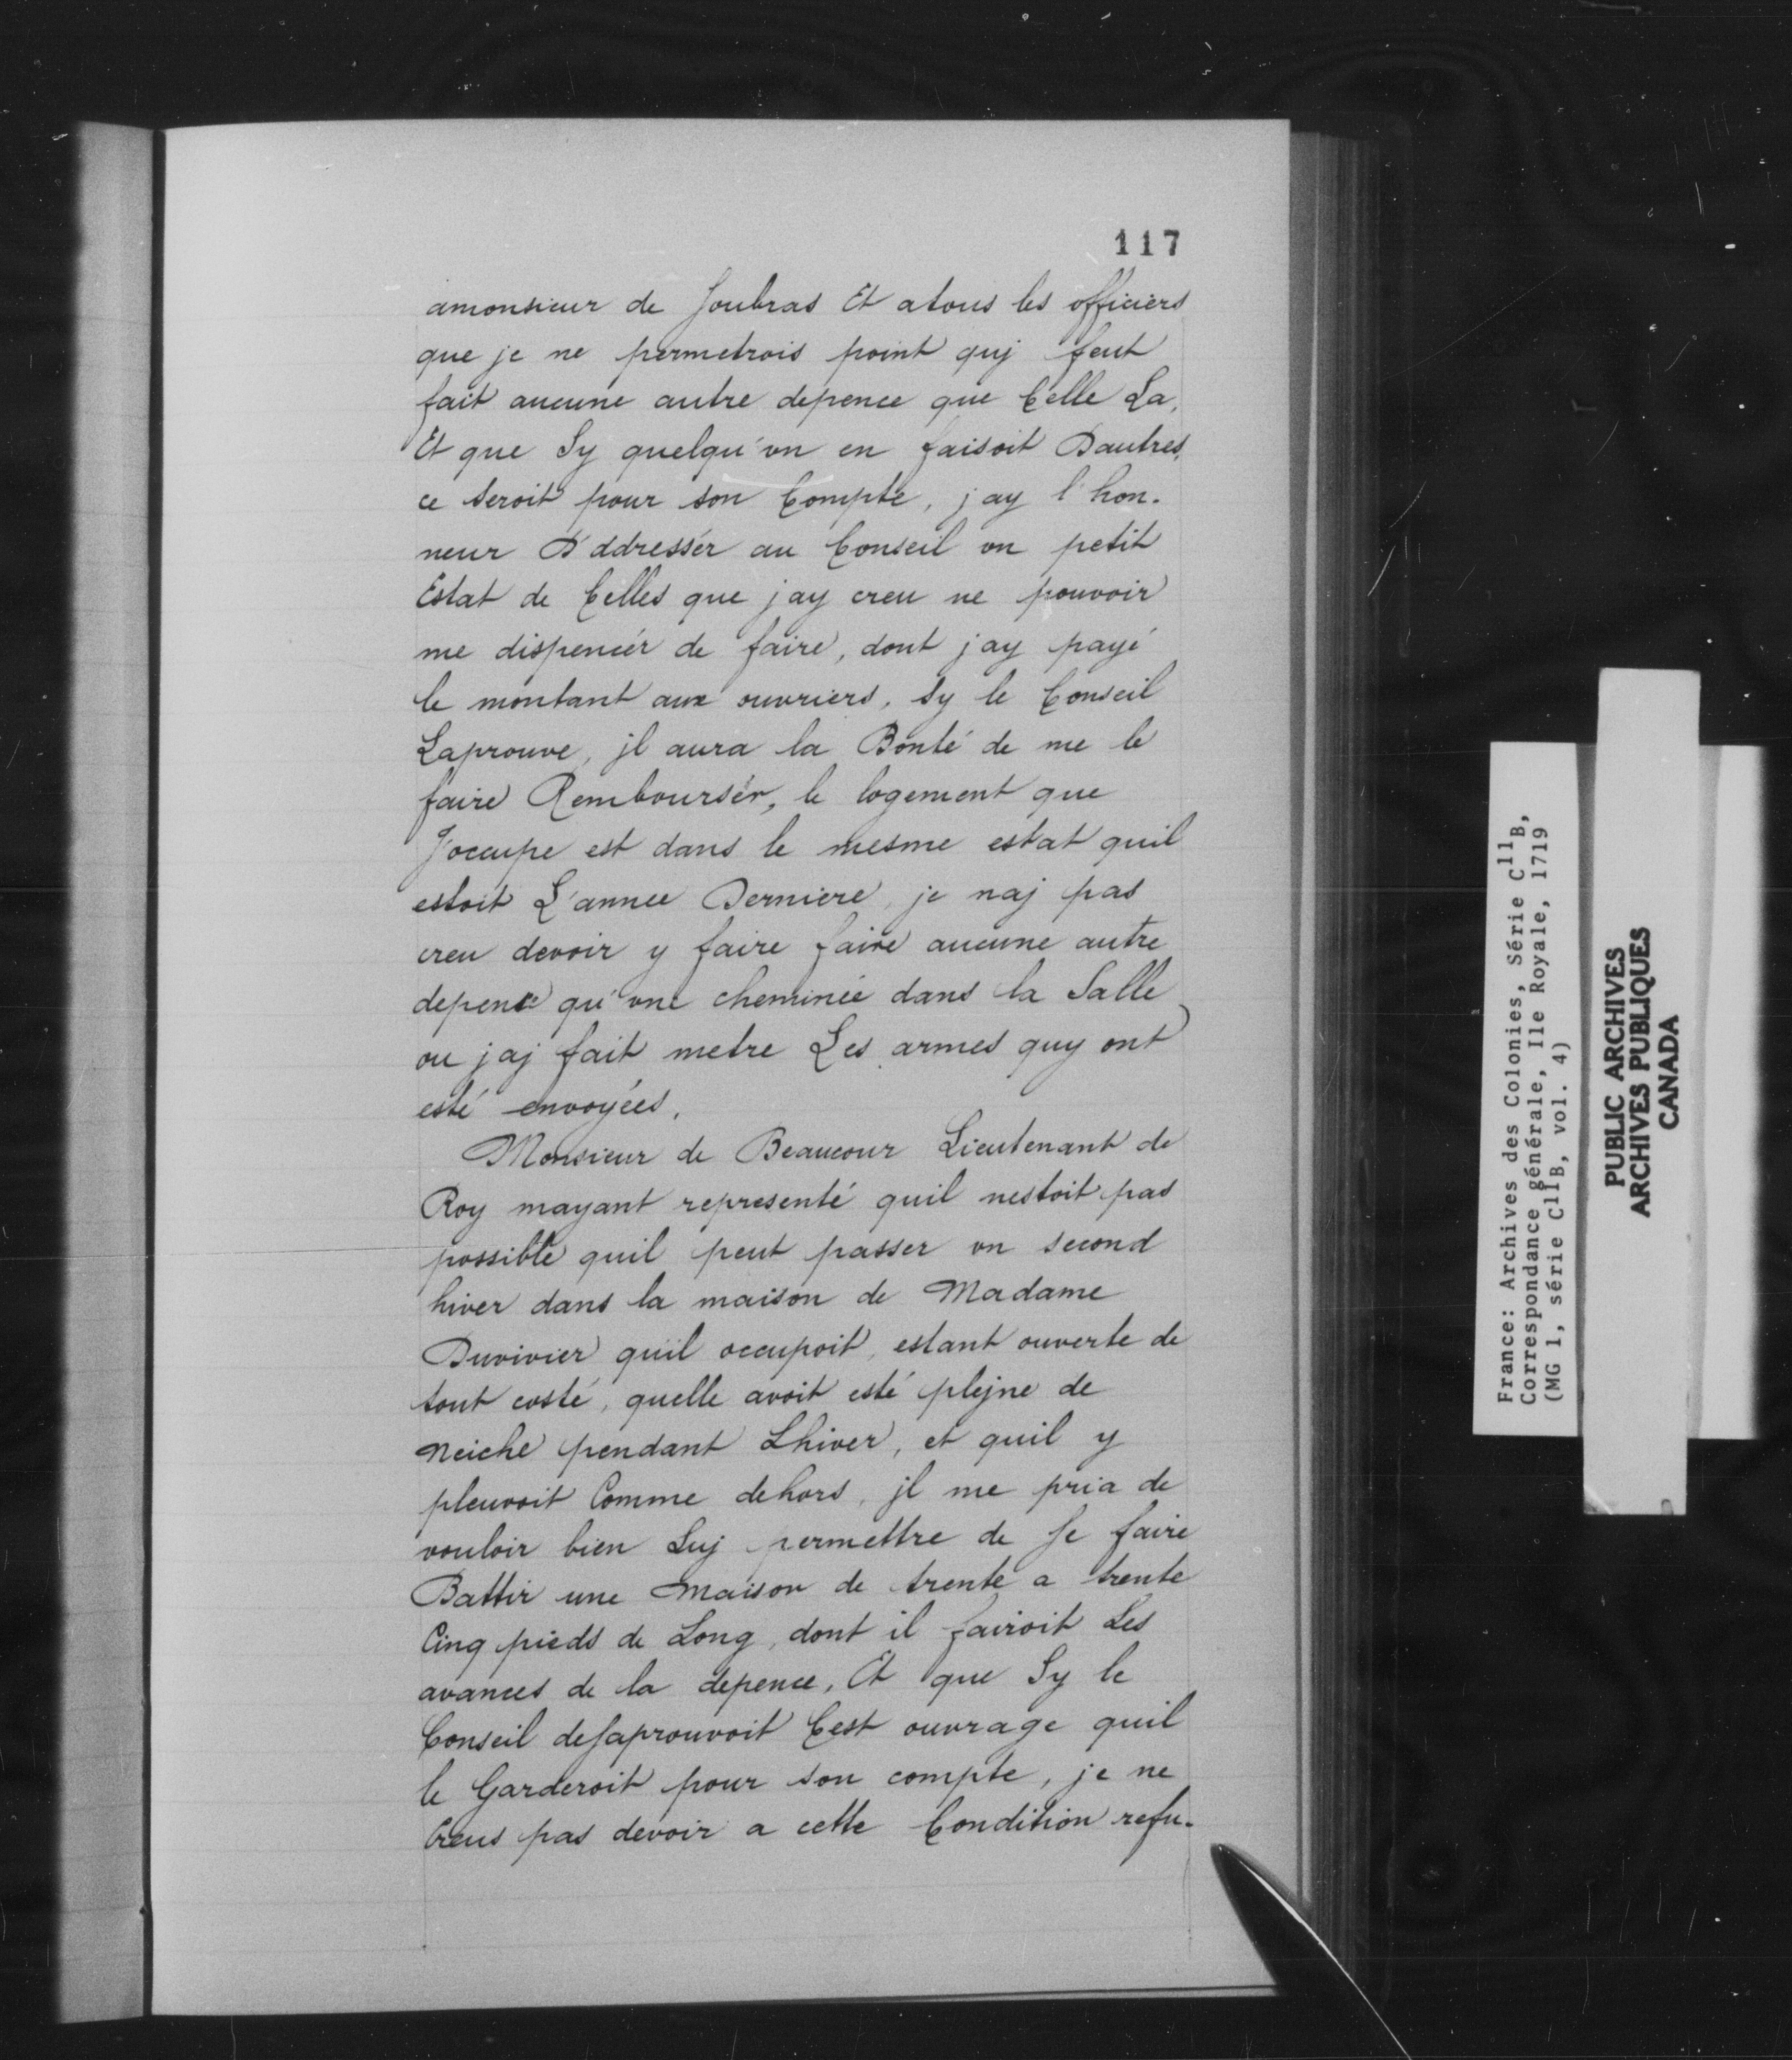 117
amonsieur de Soubras Et atous les officiers
que je ne permetrois point quj feut
fait aucune autre depence que Celle La,
Et que Sy quelqu'vn en faisoit Dautres,
ce seroit pour son Compte, jay l'hon-
neur D'addressér au Conseil vn petit
Estat de Celles que jay creu ne pouvoir
me dispencér de faire, dont jay payé
le montant aux ouvriers, Sy le Conseil
Laprouve, jl aura la Bonté de me le
faire Remboursér, le logement que
J'occupe est dans le mesme estat quil
estoit L'annee Derniere, je naj pas
creu devoir y faire faire aucune autre
depence qu'vne cheminée dans la Salle
ou jaj fait metre Les armes quy ont
esté envoyées.
Monsieur de Beaucour Lieutenant de
Roy mayant representé quil nestoit pas
possible quil peut passer vn second
hiver dans la maison de Madame
Duvivier qu'il occupoit, estant ouverte de
tout costé, quelle avoit esté plejne de
neiche pendant Lhiver, et quil y
pleuvoit Comme dehors, jl me pria de
vouloir bien Luj permettre de Se faire
Battir une maison de trente a trente
Cinq pieds de Long, dont il fairoit Les
avances de la depence, Et que Sy le
Conseil desaprouvoit Cest ouvrage quil
le Garderoit pour son compte, je ne
Creus pas devoir a cette Condition refu-
France: Archives des Colonies, Série C11B,
Correspondance générale, Ile Royale, 1719
(MG 1, série C11B, vol. 4)
PUBLIC ARCHIVES
ARCHIVES PUBLIQUES
CANADA